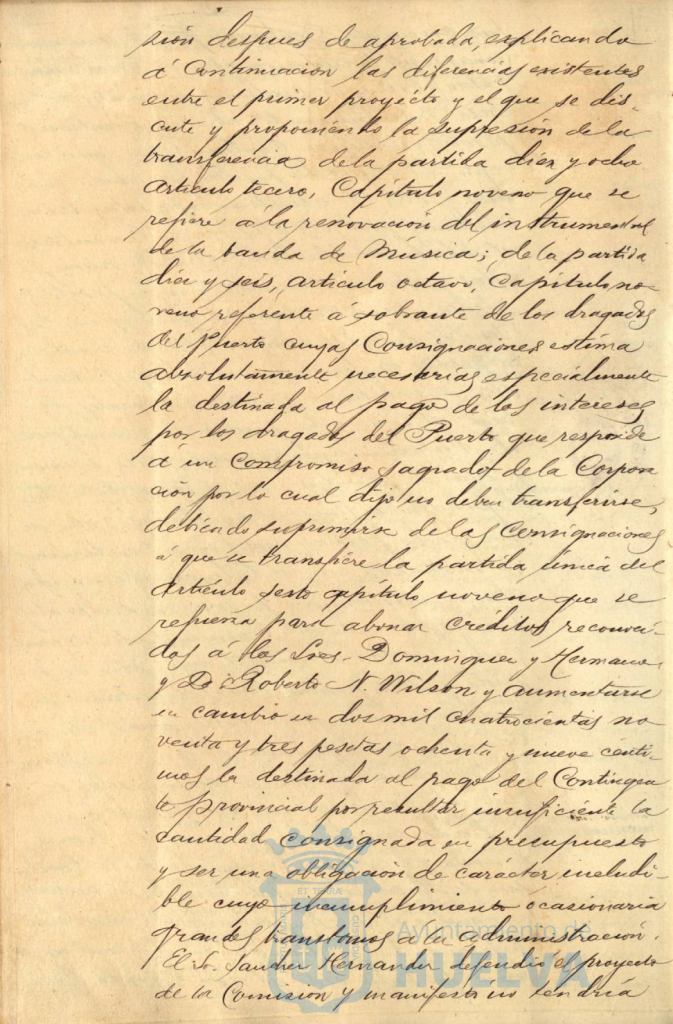 sión despues de aprobada, explicando
á continuacion las diferencias existentes
entre el primer proyécto y el que se dis-
cute y proponiendo la supresión de la
transferencia de la partida diez y ocho
artículo tecero, Capítulo noveno que se
refiere á la renovación del instrumental
de la banda de Música; de la partida
diez y seis, artículo octavo, Capítulo no-
veno referente á sobrante de los dragados
del Puerto cuyas Consignaciones estima
absolutamente necesarias especialmente
la destinada al pago de los intereses
por los dragados del Puerto que responde
á un Compromiso sagrado de la Corpora
ción por lo cual dijo no deben transferirse,
debiendo suprimirse de las Consignaciones
á que se transfiere la partida única del
artículo sesto capítulo noveno que se
refuerza para abonar créditos reconoci-
dos á los Sres. Dominguez y Hermano
y D. Roberto N. Wilson y aumentarse
en cambio en dos mil cuatrocientas no
venta y tres pesetas ochenta y nueve cénti-
mos la destinada al pago del Contingen
te provincial por resultar insuficiente la
cantidad consignada en presupuesto
y ser una obligación de carácter ineludi-
ble cuyo incumplimiento ocasionaria
grandes transtornos a la administración.
El Sr. Sanchez Hernandez defendió el proyecto
de la Comision y manifestó no tendría
Ayuntamiento de
HUELVA